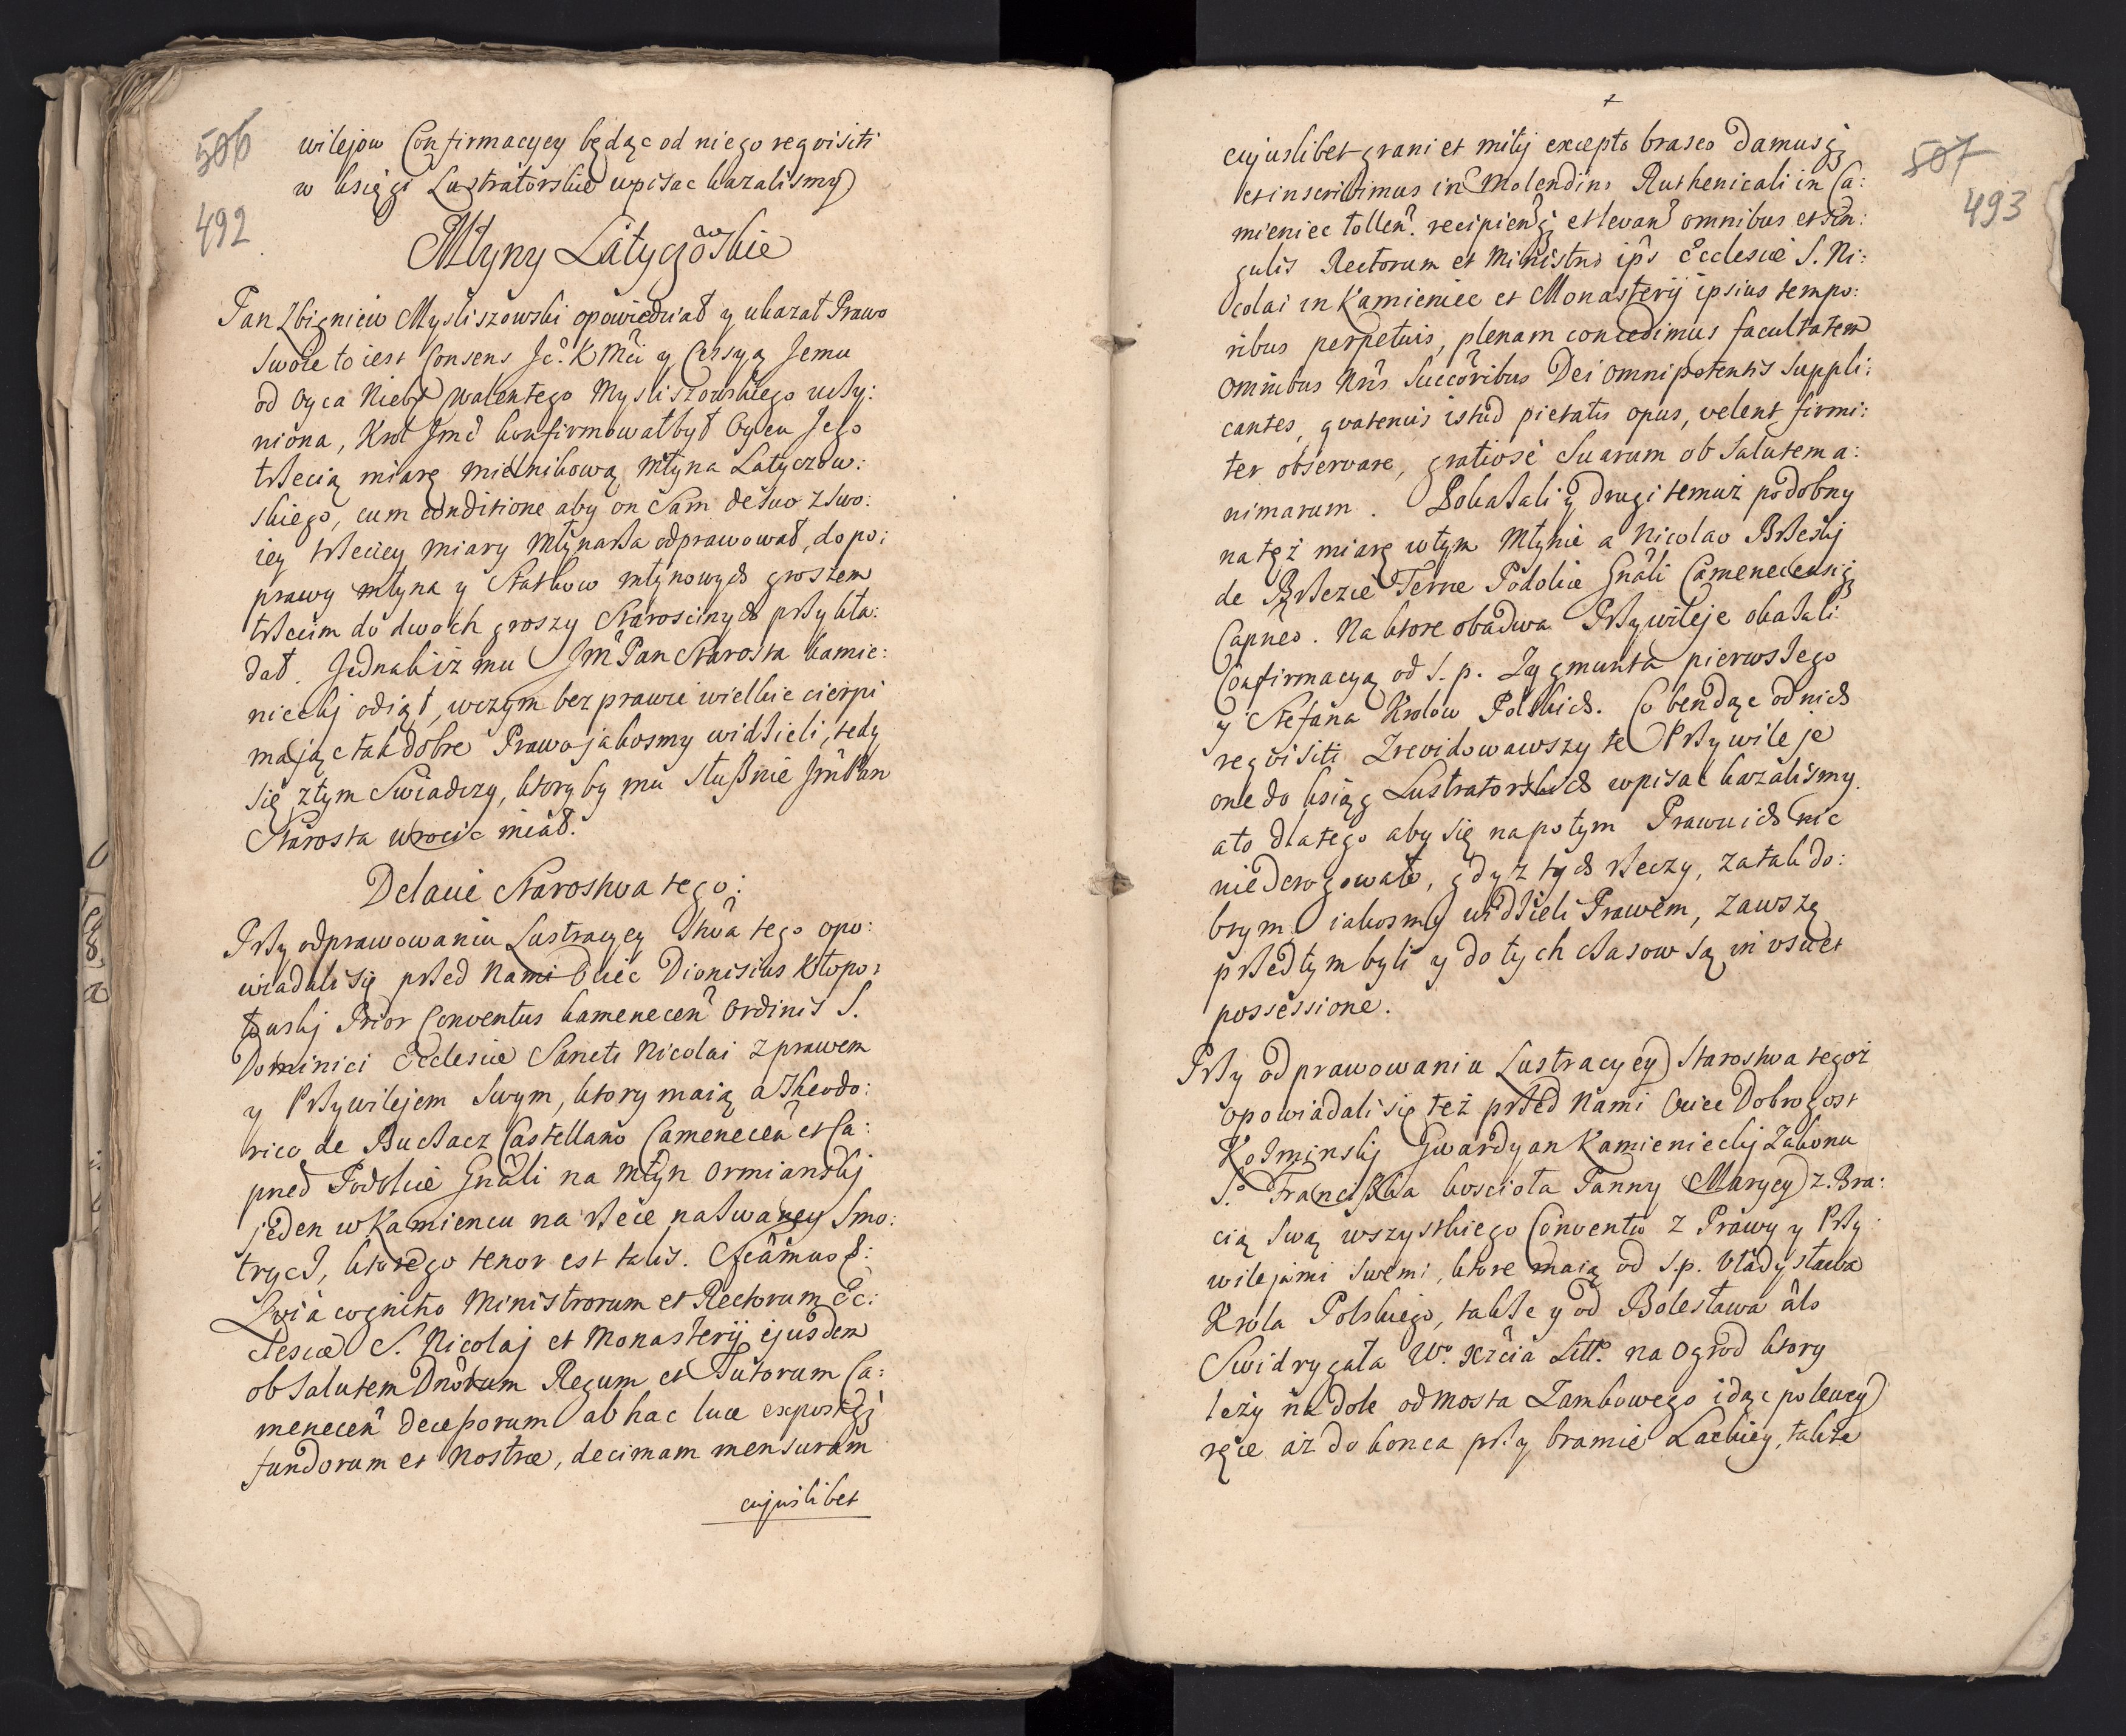 506
492
wilejow Confirmacyey będąc od niego reqvisiti
w księgi Lustratorskie wpisac kazalismy
Młyny Latyczowskie
Pan Zbigniew Mysliszowski opowiedział y ukazał Prawo
swoie to iest Consens Jº. K Mci y Cessyą Jemu
od Oyca Niebº Walentego Mysliszowskiego uczy:
niona, Krol Jmć konfirmował był Oycu Jego
trzecią miarę mielnikową Młyna Latyczow:
skiego, cum conditione aby on sam de suo z swo:
iey trzeciey miary Młynarza odprawował, do po:
prawy młyna y Statkow młynowych groszem
trzecim do dwoch groszy Staroscinych przykła:
dał. Jednak iż mu Jm Pan Starosta kamie:
niecki odiął, w czym bezprawie wielkie cierpi
mając tak dobre Prawo jakosmy widzieli, tedy
się z tym Swiadczy, ktory by mu słusznie Jm Pan
Starosta wrocic miał.
Delacie Starostwa tego:
Przy odprawowaniu Lustracyey Stwa tego opo:
wiadali się przed Nami Ociec Dionisius Kłopo:
towskj Prior Conventus kamenecen Ordinis S.
Dominici Ecclesiæ Sancti Nicolai z prawem
y Przywilejem swym, ktory maią a Theodo:
rico de Buczacz Castellano Camenecen et Ca:
pneo Podoliæ Gnali na Młyn Ormianskj
jeden w Kamiencu na rzece nazwaney Smo:
trycz, ktorego tenor est talis. Scamus &:
Qvia cognitio Ministrorum et Rectorum Ec:
clesiæ S. Nicolaj et Monasterij ejusdem
ob salutem Dnorum Regum et Tutorum Ca:
menecen decessorum ab hac luce expostqꝫ
fundorum et Nostræ, decimam mensuram
cujuslibet
507
493
cujuslibet grani et milij excepto braseo Damusqꝫ
et inscribimus in Molendino Ruthenicali in Ca:
mieniec tollen. recipienqꝫ et levan omnibus et Sin:
gulis Rectorum et Ministris ips Ecclesiæ S. Ni:
colai in Kamieniec et Monasterij ipsius tempo:
ribus perpetuis, plenam concedimus facultatem
omnibus Nris Succoribus Dei omnipotentis suppli:
cantes, qvatenus istud pietatis opus, velent firmi:
ter observare, gratiosè suarum ob salutem a:
nimarum. Pokazali y drugi temuż podobny
na tęż miarę w tym Młynie a Nicolao Brzeskj
de Brzezie Terræ Podoliæ Gnali Camenecensiqꝫ
Capneo. Na ktore obadwa Przywileje okazali
Confirmacyą od S. p. Zygmunta pierwszego
y Stefana Krolow Polskich. Co bendąc od nich
reqvisiti Zrevidowawszy te Przywileje
one do ksiąg Lustratorskich wpisac kazalismy.
a to dlatego aby się napotym Prawu ich nic
niederogowało, gdyz tych rzeczy, za tak do:
brym iakosmy widzieli Prawem, zawszę
przedtym byli y do tych czasow są in usu et
possessione.
Przy odprawowaniu Lustracyey Starostwa tegoż
opowiadali się też przed Nami Ociec Dobrogost
Kozminskj Gwardyan Kamienieckj Zakonu
Sº Franciszka koscioła Panny Maryey z Bra:
cią swą wszystkiego Conventu z Prawy y Przy
wilejami swemi, ktore maią od S.p. Władysława
Krola Polskiego, takze y od Bolesława als
Swidrygała Wº. Xzcia Litt. na Ogrod ktory
leży na dole od Mosta Zamkowego idąc po lewey
ręce aż do konca przy bramie Lackiey, takze